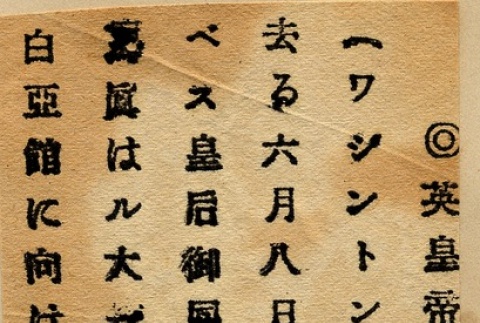 ◎英皇帝
(ワシントン
去る六月八日
ベス皇后御同
寫眞はル大
白亞館に向は